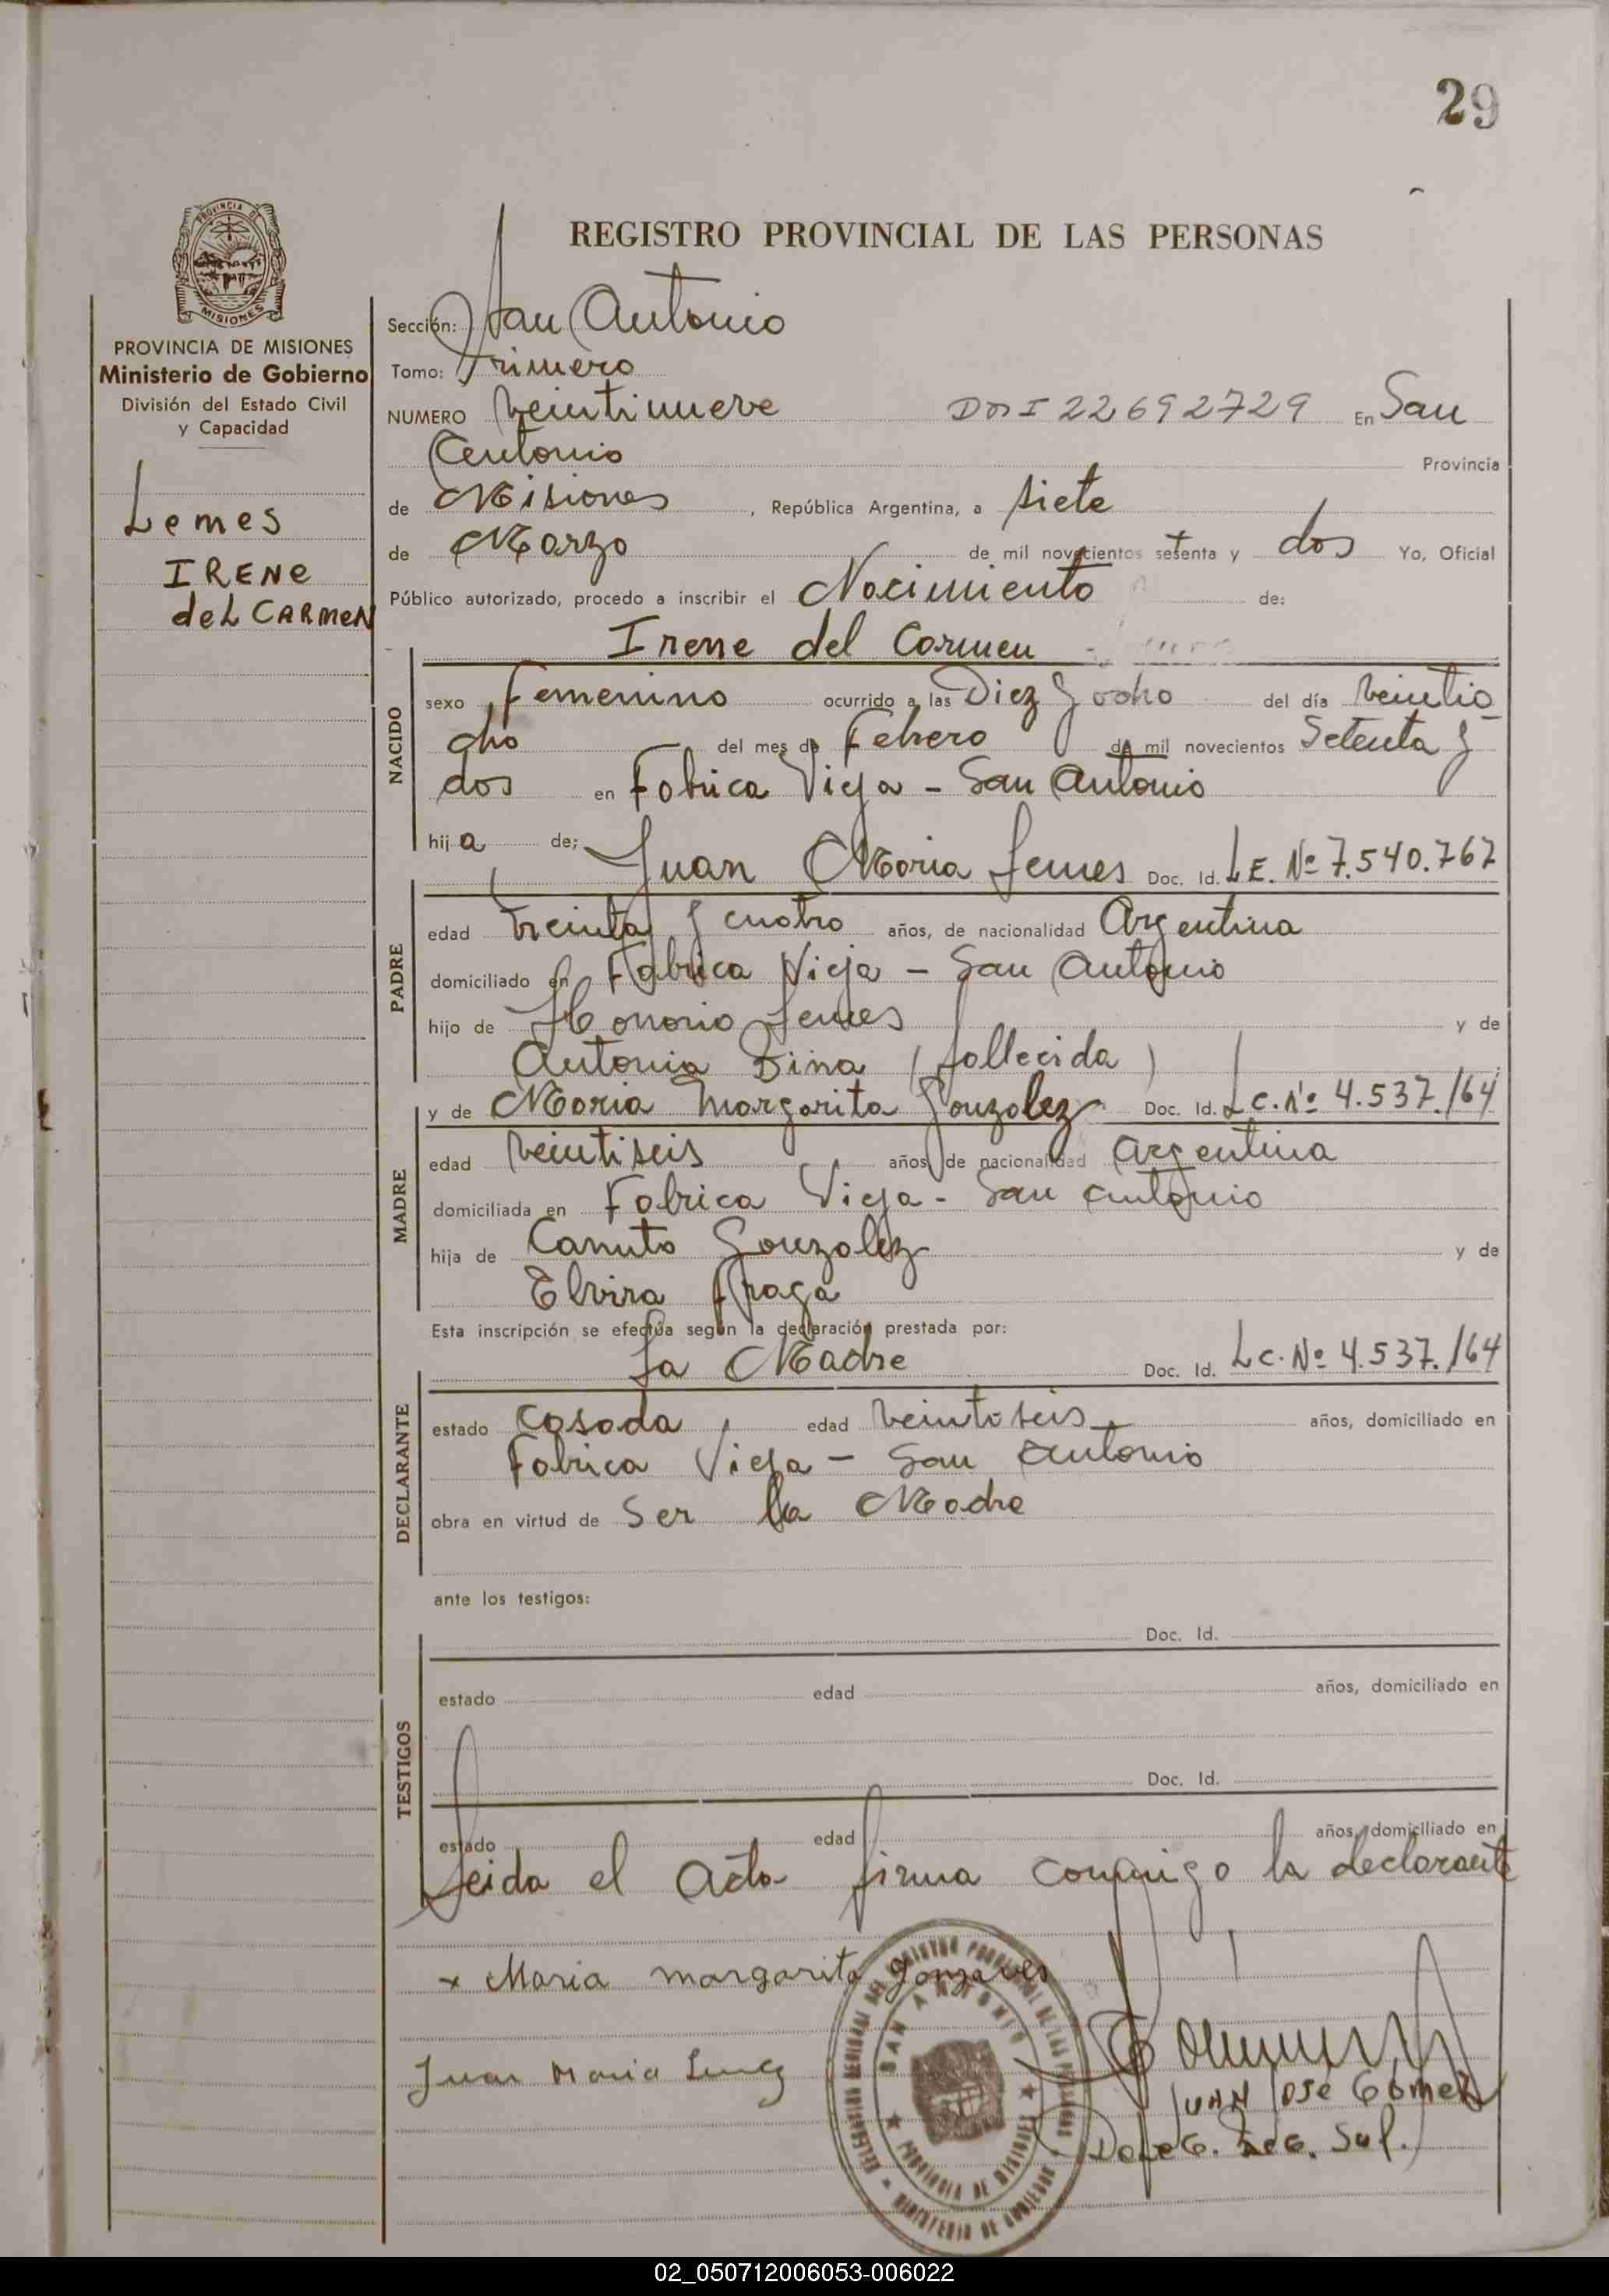 29
REGISTRO PROVINCIAL DE LAS PERSONAS
PROVINCIA DE
MISIONES
PROVINCIA DE MISIONES
Ministerio de Gobierno
División del Estado Civil
y Capacidad
Lemes
IRENe
deL CARMeN
Sección: San Antonio
Tomo: Primero
NUMERO Veintinueve DNI 22692729 En San
Antonio Provincia
de Misiones , República Argentina, a siete
de Marzo de mil novecientos setenta y dos Yo, Oficial
Público autorizado, procedo a inscribir el Nacimiento de:
Irene del Carmen
NACIDO
sexo Femenino ocurrido a las Diez y ocho del día Veintio
cho del mes de Febrero de mil novecientos Setenta y
dos en Fabrica Vieja - San Antonio
hij a de; Juan Maria Lemes Doc. Id. L.E. Nº 7.540.767
PADRE
edad treinta y cuatro años, de nacionalidad Argentina
domiciliado en Fabrica Vieja - San Antonio
hijo de Honorio Lemes y de
Antonia Bina (fallecida)
y de Maria Margarita Gonzalez Doc. Id. L.C. Nº 4.537.164
MADRE
edad Veintiseis años, de nacionalidad Argentina
domiciliada en Fabrica Vieja - San Antonio
hija de Canuto Gonzalez y de
Elvira Fraga
Esta inscripción se efectúa según la declaración prestada por:
La Madre Doc. Id. Lc. Nº 4.537.164
DECLARANTE
estado Casada, edad Veintiseis años, domiciliado en
Fabrica Vieja - San Antonio
obra en virtud de Ser la Madre
ante los testigos:
Doc. Id.
TESTIGOS
estado edad años, domiciliado en
Doc. Id.
estado edad años, domiciliado en
Leida el Acta firma conmigo la declarante
x Maria margarita
Juan Maria
SAN ANTONIO
PROVINCIA DE MISIONES
MINISTERIO DE GOBIERNO
JUAN JOSé GómeZ
Sul.
02_050712006053-006022